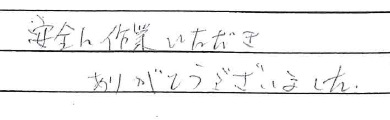 安全に作業いただき
ありがとうございました.